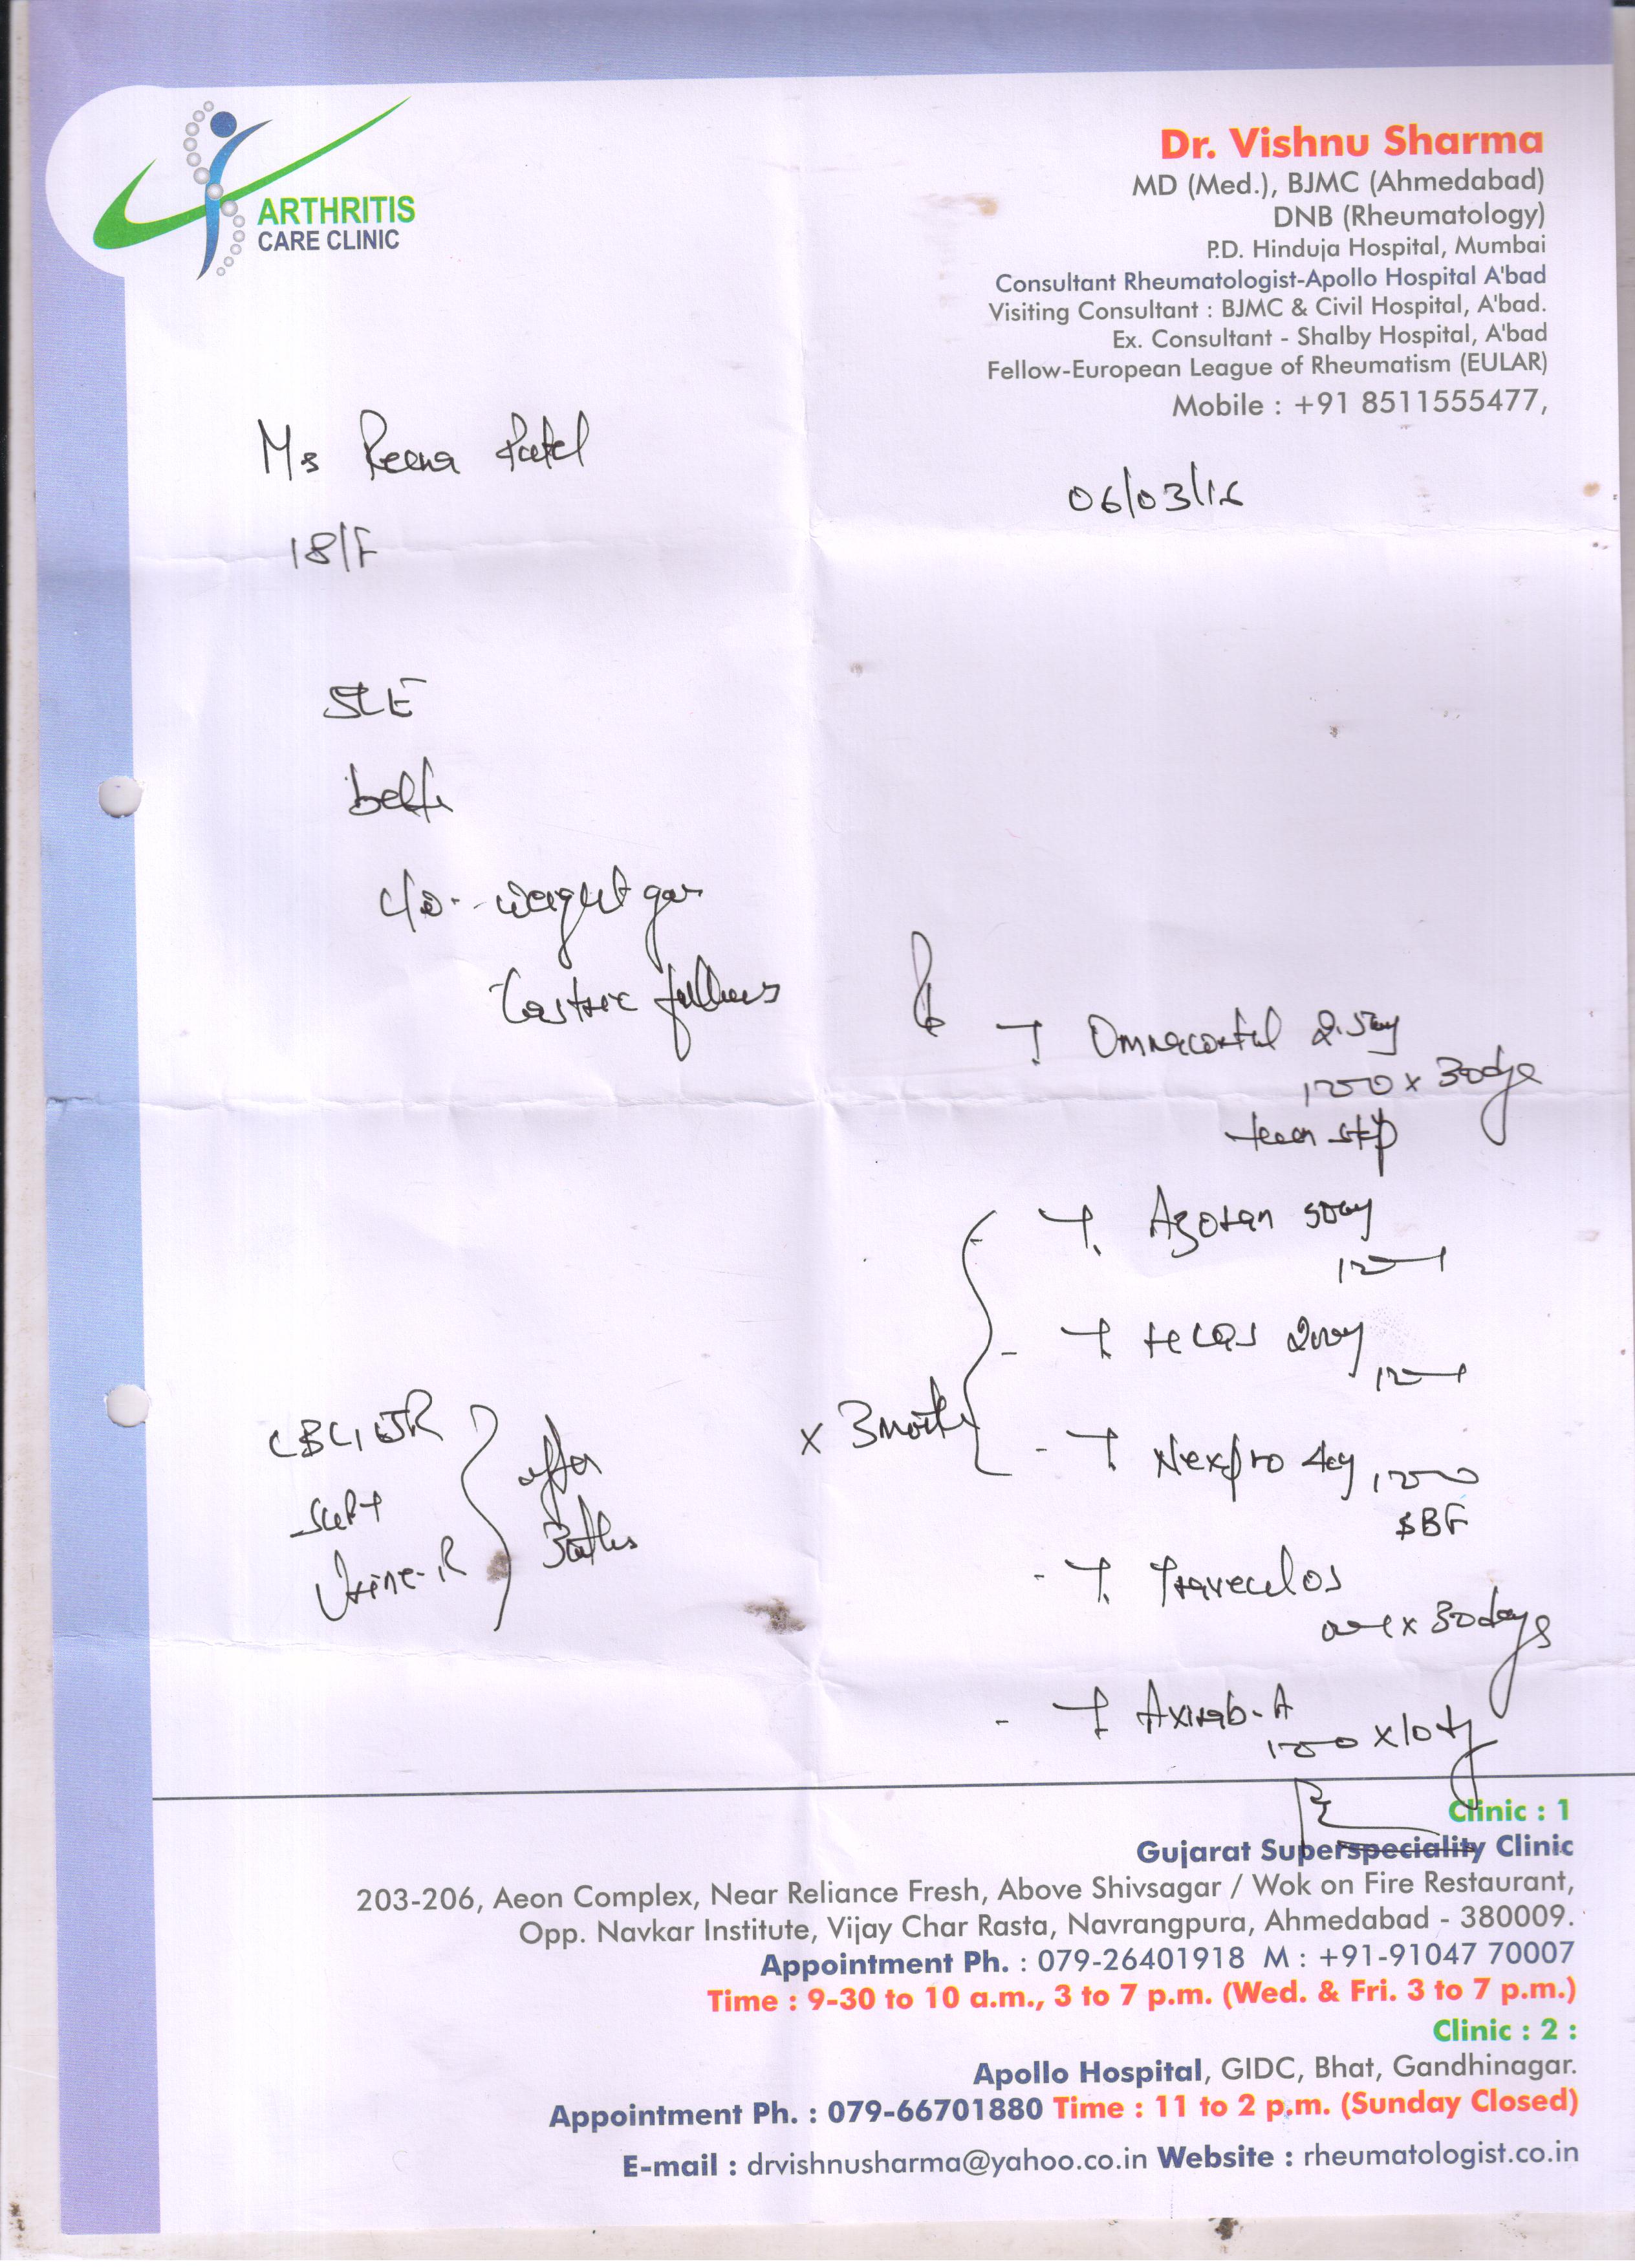 ARTHRITIS
CARE CLINIC
Dr. Vishnu Sharma
MD (Med.), BJMC (Ahmedabad)
DNB (Rheumatology)
P.D. Hinduja Hospital, Mumbai
Consultant Rheumatologist-Apollo Hospital A'bad
Visiting Consultant : BJMC & Civil Hospital, A'bad.
Ex. Consultant - Shalby Hospital, A'bad
Fellow-European League of Rheumatism (EULAR)
Mobile : +91 8511555477,
Ms Reena Patel
06/03/16
18/F
SLE
c/o - weight gain
Gastric fullness
T Omnacortil 2.5mg
1-0-0 x 30 days
then stop
- T. Azoran 50mg
1-0-1
- T HCQS 200mg
1-0-1
x 3 month
- T Nexpro 40mg 1-0-0
BBF
- T.
0-0-1 x 30 days
- T
1-0-0 x 10
CBC, ESR
SGPT
Urine-R
after
3 mths
Clinic : 1
Gujarat Superspeciality Clinic
203-206, Aeon Complex, Near Reliance Fresh, Above Shivsagar / Wok on Fire Restaurant,
Opp. Navkar Institute, Vijay Char Rasta, Navrangpura, Ahmedabad - 380009.
Appointment Ph. : 079-26401918 M : +91-91047 70007
Time : 9-30 to 10 a.m., 3 to 7 p.m. (Wed. & Fri. 3 to 7 p.m.)
Clinic : 2 :
Apollo Hospital, GIDC, Bhat, Gandhinagar.
Appointment Ph. : 079-66701880 Time : 11 to 2 p.m. (Sunday Closed)
E-mail : drvishnusharma@yahoo.co.in Website : rheumatologist.co.in